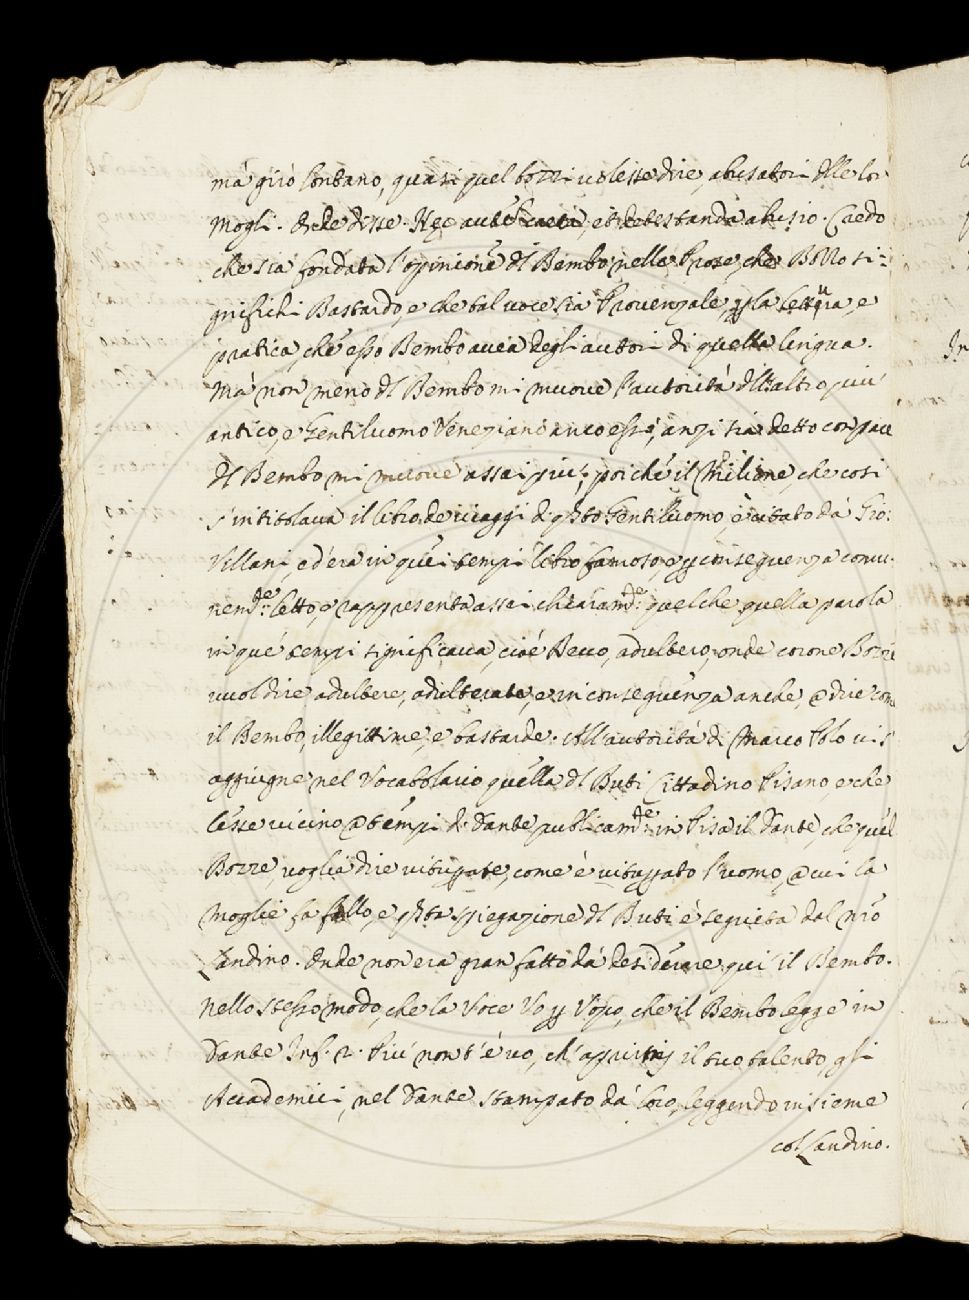 mà girò lontano, quasi quel bozzi volesse dire, abusatori dlle lor
mogli. Onde disse. Hęc autē spreta, et detestanda abusio. Credo
che sia fondata l'opinione dl Bembo nelle Prose, che Bozzo si-
gnifichi Bastardo, e che tal voce sia Provenzale, p la lettura, e
pratica, che esso Bembo avea degli autori di quella lingua.
Mà non meno dl Bembo mi muove l'autorità dll'altro più
antico, e Gentiluomo Veneziano anco esso, anzi sia detto con pace
dl Bembo mi muove assai più; poiché il Milione, che così
s'intitolava il libro de viaggi di qsto Gentiluomo, è citato dà Gio:
Villani, ed era in quei tempi libro famoso, e p conseguenza comu-
nemte: letto, e rappresenta assai chiaramte: quel che quella parola
in què tempi significava, cioè Becco, adultero, onde corone Bozze
vuol dire adultere, adulterate, e in conseguenza anche, a dire come
il Bembo, illegittime, e bastarde. All'autorità di Marco Polo vis'
aggiugne nel Vocabolario quella dl Buti Cittadino Pisano, e che
lesse vicino a tempi di Dante publicamte: in Pisa il Dante, che quel
Bozze, voglia dire vituppate, come è vituppato l'uomo, a cui la
moglie fa fallo, e qsta spiegazione dl Buti è seguita dal nro
Landino. Onde non era gran fatto dà desiderare qui il Bembo.
Nello stesso modo, che la Voce Vo p Vopo, che il Bembo legge in
Dante Inf. 2. Più non t'è vo, ch'apprirmj il tuo talento, gli
Accademici, nel Dante stampato dà loro, leggendo insieme
col Landino.